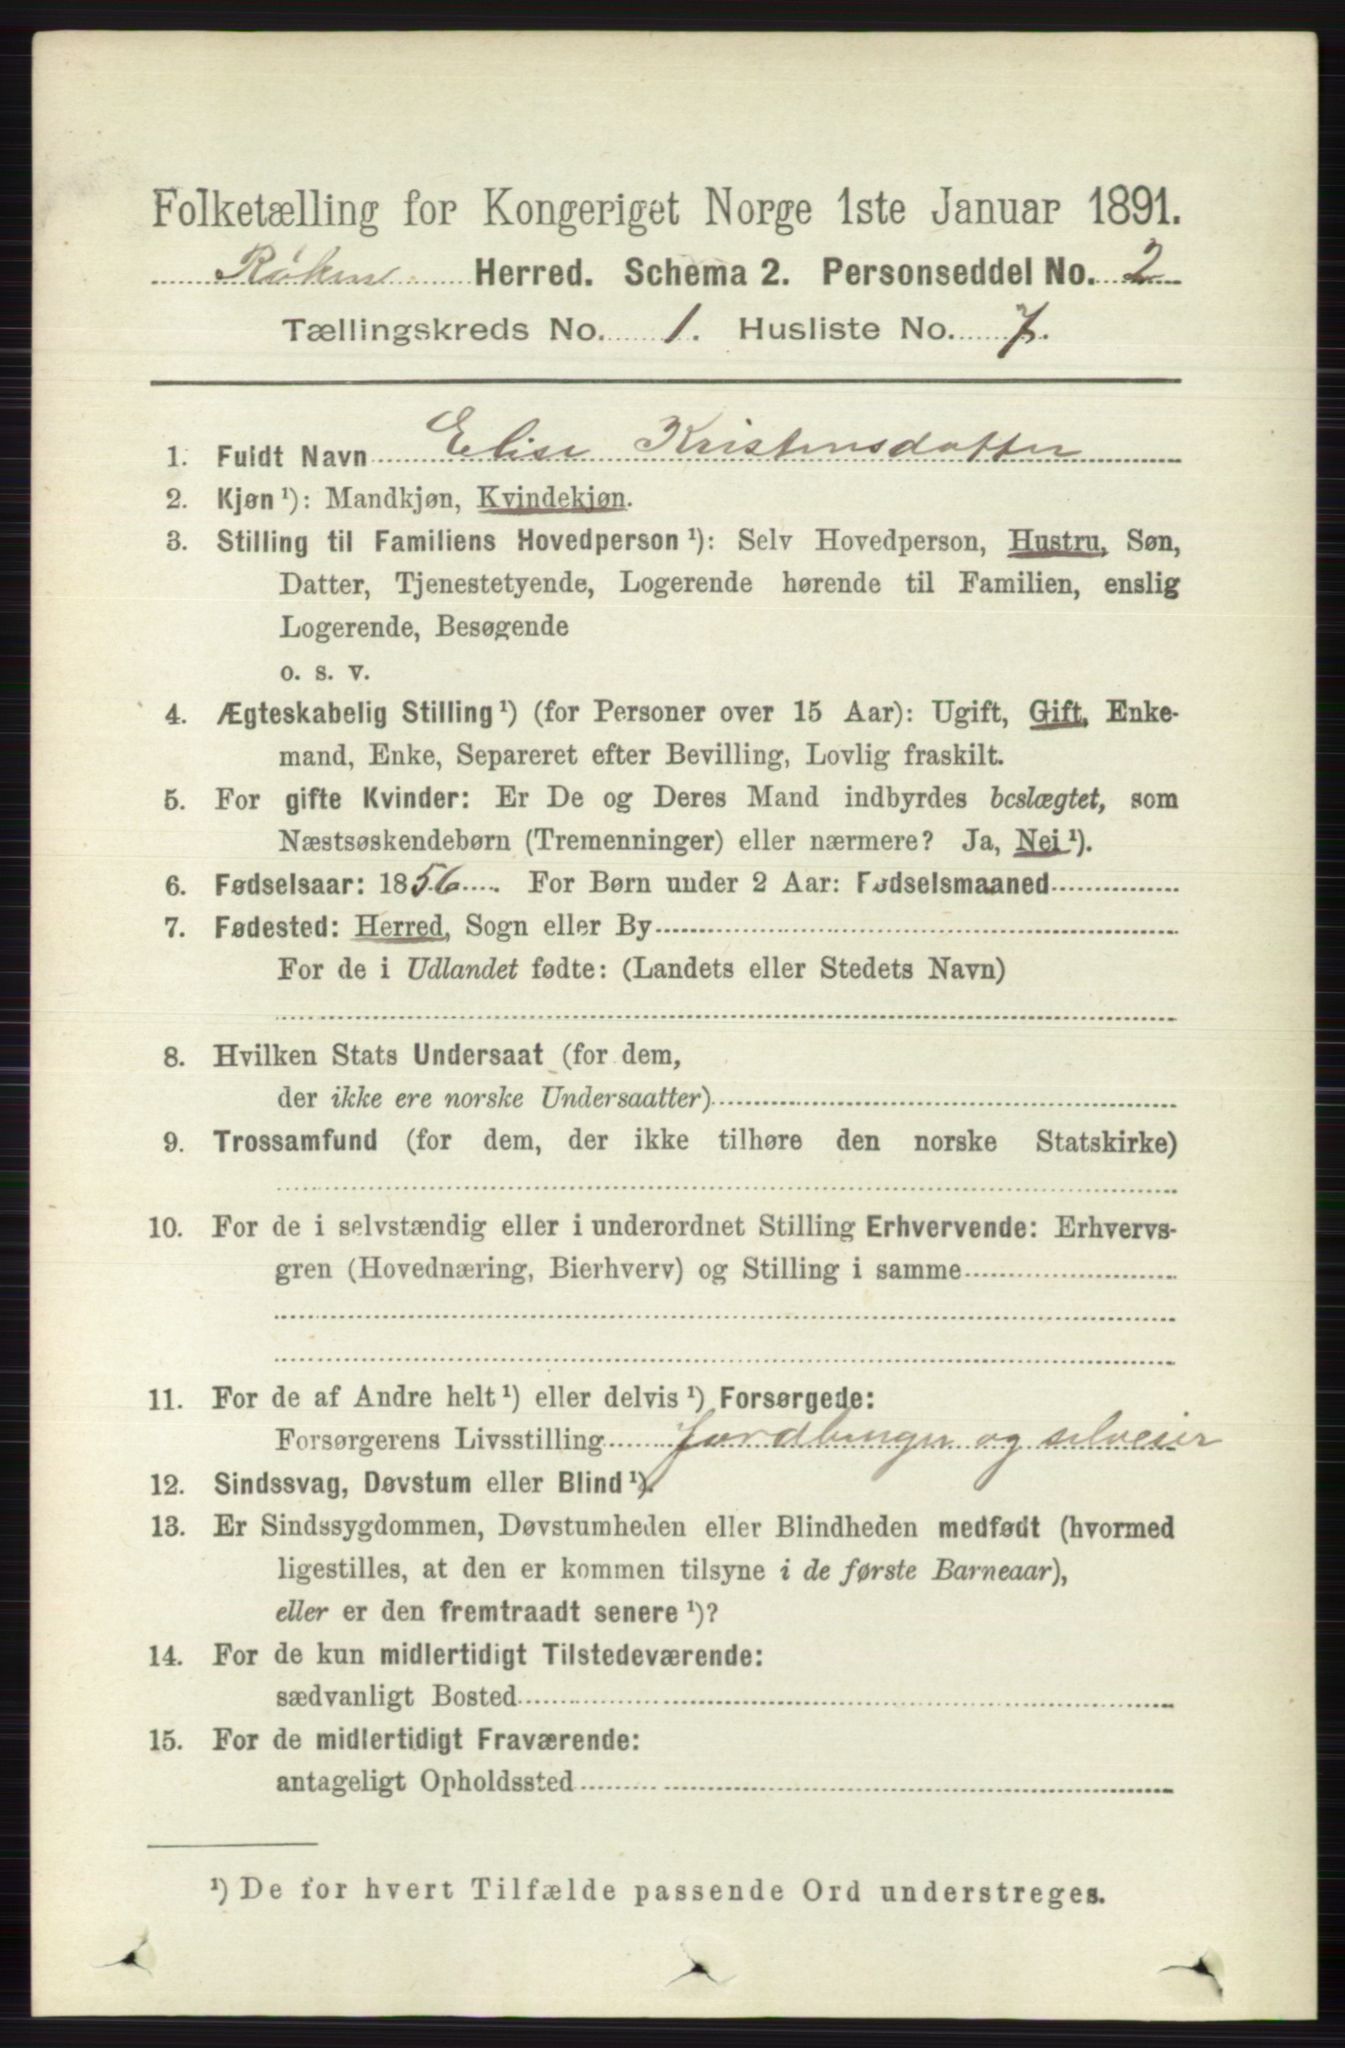 Folketælling for Kongeriget Norge 1ste Januar 1891.
Røken Herred. Schema 2. Personseddel No. 2
Tællingskreds No. 1. Husliste No. 7.
1. Fuldt Navn Elise Kristensdatter
2. Kjøn¹): Mandkjøn, Kvindekjøn.
3. Stilling til Familiens Hovedperson¹): Selv Hovedperson, Hustru, Søn,
Datter, Tjenestetyende, Logerende hørende til Familien, enslig
Logerende, Besøgende
o. s. v.
4. Ægteskabelig Stilling¹) (for Personer over 15 Aar): Ugift, Gift, Enke-
mand, Enke, Separeret efter Bevilling, Lovlig fraskilt.
5. For gifte Kvinder: Er De og Deres Mand indbyrdes beslægtet, som
Næstsøskendebørn (Tremenninger) eller nærmere? Ja, Nei¹).
6. Fødselsaar: 1856. For Børn under 2 Aar: Fødselsmaaned
7. Fødested: Herred, Sogn eller By
For de i Udlandet fødte: (Landets eller Stedets Navn)
8. Hvilken Stats Undersaat (for dem,
der ikke ere norske Undersaatter)
9. Trossamfund (for dem, der ikke tilhøre den norske Statskirke)
10. For de i selvstændig eller i underordnet Stilling Erhvervende: Erhvervs-
gren (Hovednæring, Bierhverv) og Stilling i samme
11. For de af Andre helt¹) eller delvis¹) Forsørgede:
Forsørgerens Livsstilling Jordbruger og selveier
12. Sindssvag, Døvstum eller Blind¹).
13. Er Sindssygdommen, Døvstumheden eller Blindheden medfødt (hvormed
ligestilles, at den er kommen tilsyne i de første Barneaar),
eller er den fremtraadt senere¹)?
14. For de kun midlertidigt Tilstedeværende:
sædvanligt Bosted
15. For de midlertidigt Fraværende:
antageligt Opholdssted
¹) De for hvert Tilfælde passende Ord understreges.